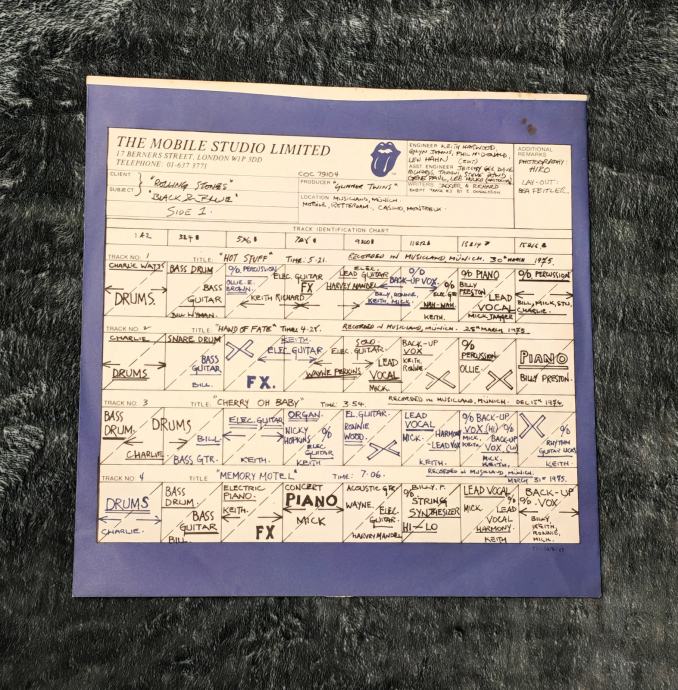 THE MOBILE STUDIO LIMITED
17 BERNERS STREET, LONDON W1P 3DD
TELEPHONE: 01-637 3771
ENGINEER KEITH HARWOOD,
GLYN JOHNS, PHIL McDONALD,
LEW HAHN
ADDITIONAL
REMARKS
PHOTOGRAPHY
HIRO
LAY-OUT:
BEA FEITLER.
CLIENT
"ROLLING STONES"
COC 79104
PRODUCER "GLIMMER TWINS"
WRITERS JAGGER & RICHARD
SUBJECT
"BLACK & BLUE"
SIDE 1.
LOCATION MUSICLAND, MUNICH.
MOBILE, ROTTERDAM, CASINO, MONTREUX.
TRACK IDENTIFICATION CHART
TRACK NO. 1 TITLE: "HOT STUFF" TIME: 5.21. RECORDED IN MUSICLAND MUNICH. 30th MARCH 1975.
CHARLIE WATTS
DRUMS.
BASS DRUM
BASS
GUITAR
BILL WYMAN.
% PERCUSSION
OLLIE E.
BROWN.
ELEC. GUITAR
FX
KEITH RICHARD
ELEC.
LEAD GUITAR
HARVEY MANDEL
%
BACK-UP VOX
BILLY, RONNIE,
KEITH, MICK.
% PIANO
BILLY
PRESTON
LEAD
VOCAL
MICK JAGGER
KEITH.
% PERCUSSION
BILL, MICK, STU,
CHARLIE.
TRACK NO. 2 TITLE: "HAND OF FATE" TIME: 4-28. RECORDED IN MUSICLAND, MUNICH. 25th MARCH 1975.
CHARLIE
DRUMS
SNARE DRUM
BASS
GUITAR
BILL.
KEITH.
ELEC GUITAR
FX.
SOLO.
ELEC. GUITAR.
WAYNE PERKINS
LEAD
VOCAL
MICK.
BACK-UP
VOX
KEITH
RONNIE
%
PERCUSSION
OLLIE
PIANO
BILLY PRESTON.
TRACK NO. 3 TITLE: "CHERRY OH BABY" TIME: 3.54. RECORDED IN MUSICLAND, MUNICH. DEC 15th 1974.
BASS
DRUM.
DRUMS
CHARLIE
BILL
BASS GTR.
ELEC. GUITAR
KEITH.
ORGAN.
NICKY
HOPKINS
%
ELEC
GUITAR
KEITH
EL. GUITAR.
RONNIE
WOOD.
LEAD
VOCAL
MICK.
HARMONY
LEAD VOX
KEITH.
% BACK-UP
VOX (HI) %
MICK,
KEITH.
BACK-UP
VOX (LO)
MICK.
KEITH.
%
RHYTHM
GUITAR
KEITH
RECORDED IN MUSICLAND, MUNICH.
MARCH 31st 1975.
TRACK NO. 4 TITLE: "MEMORY MOTEL" TIME: 7.06.
DRUMS
CHARLIE.
BASS
DRUM.
BASS
GUITAR
BILL
ELECTRIC
PIANO.
KEITH.
FX
CONCERT
PIANO
MICK
ACOUSTIC GTR
WAYNE.
ELEC.
GUITAR.
HARVEY MANDEL
% BILLY. P.
STRING
SYNTHESIZER
HI-LO
LEAD VOCAL
MICK
LEAD
VOCAL
HARMONY.
KEITH
BACK-UP
% VOX.
BILLY,
KEITH,
RONNIE,
MICK.